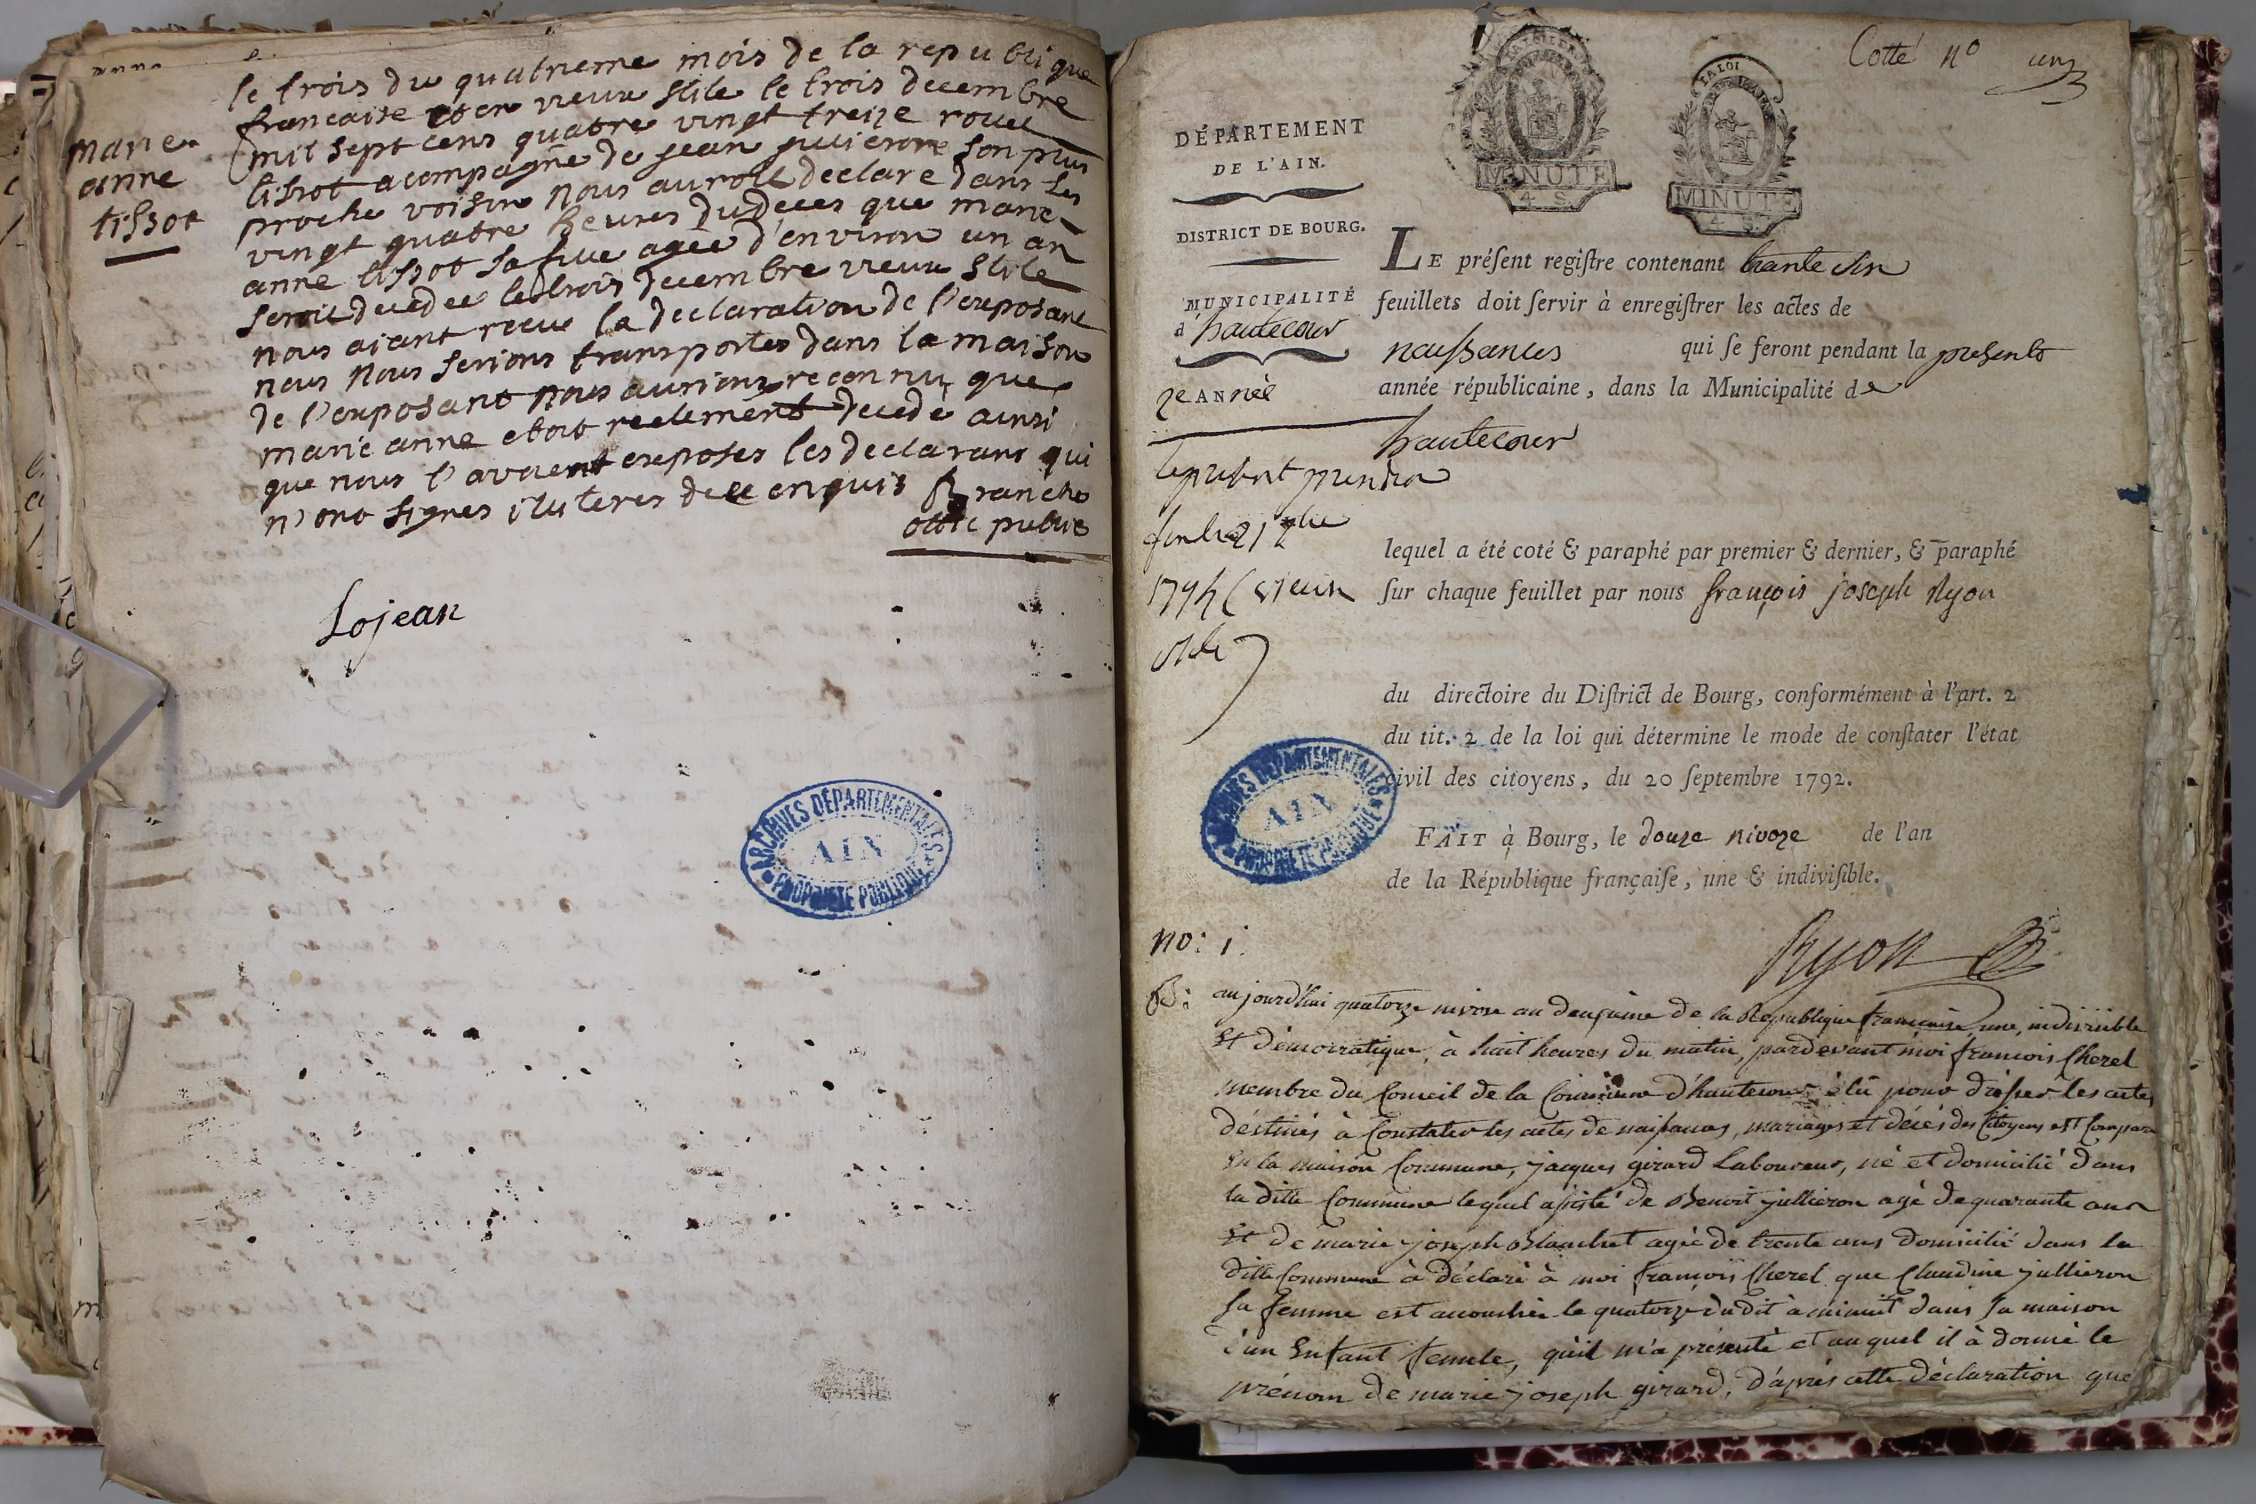 le trois du quatrieme mois de la republique
francaise et en vieux stile le trois decembre
mil sept cens quatre vingt treize
marie
anne
tissot
tissot acompagne de jean son plus
proche voisin nous auroit declare dans les
vingt quatre heures du deces que marie
anne tissot sa fille agee d'environ un an
seroit decedee le trois decembre vieux stile
nous aiant recue la declaration de l'exposant
nous nous serions transportes dans la maison
de l'exposant nous aurions reconnu que
marie anne etoit reelement decedè ainsi
que nous l'avoient exposes les declarans qui
n'ont signes de ce enquis
offic public
Lojean
ARCHIVES DÉPARTEMENTALES
AIN
PROPRIÉTÉ PUBLIQUE
Cotté nº un
LA LOI
MINUTE
4. S.
MINUTE
4. S.
DÉPARTEMENT
DE L'AIN.
DISTRICT DE BOURG.
MUNICIPALITÉ
d'hautecour
2e ANnée
1794 (vieux
stile)
LE préſent regiſtre contenant trante six
feuillets doit ſervir à enregiſtrer les actes de
naissances qui ſe feront pendant la presente
année républicaine, dans la Municipalité de
hautecour
lequel a été coté & paraphé par premier & dernier, & paraphé
ſur chaque feuillet par nous françois joseph Ryon
du directoire du Diſtrict de Bourg, conformément à l'art. 2
du tit. 2 de la loi qui détermine le mode de conſtater l'état
civil des citoyens, du 20 ſeptembre 1792.
ARCHIVES DÉPARTEMENTALES
AIN
PROPRIÉTÉ PUBLIQUE
FAIT à Bourg, le douze nivoze de l'an
de la République françaiſe, une & indiviſible.
Ryon
no: 1:
aujourd'hui quatorze nivose an deuxième de la République francaise une, indivisible
Et démocratique, à huit heures du matin, pardevant moi francois Cherel
membre du Conseil de la Commune d'hautecour élû pour drésser les actes
déstinés à Constater les actes de naissances, mariages et décés des Citoyens est Comparu
En la maison Commune, jacques girard Laboureur, né et domicilié dans
la ditte Commune lequel assisté de Benoit jullieron agé de quarante ans
Et de marie joseph Blanchet agée de trente ans domicilié dans la
ditte Commune à déclaré à moi francois Cherel que Claudine jullieron
Sa femme est accouchée le quatorze dudit à minuit dans sa maison
d'un Enfant femele, qu'il m'a présenté et auquel il à donné le
prénom de marie joseph girard, d'aprés cette déclaration que